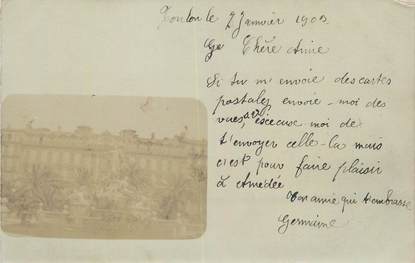 Toulon le 7 Janvier 1903
Chère Amie
Si tu m'envoie des cartes
postales envoie-moi des
vues, excuse moi de
t'envoyer celle-la mais
c'est pour faire plaisir
à Amedée
Ton amie qui t'embrasse
Germaine